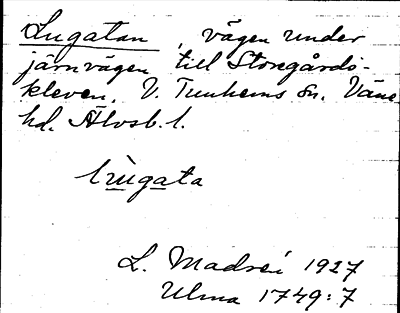 Lugatan, vägen under
järnvägen till Storegårds-
kleven. V. Tunhems sn. Väne
hd. Älvsb. l.
lùgata
L. Madsén 1927
Ulma 1749:7